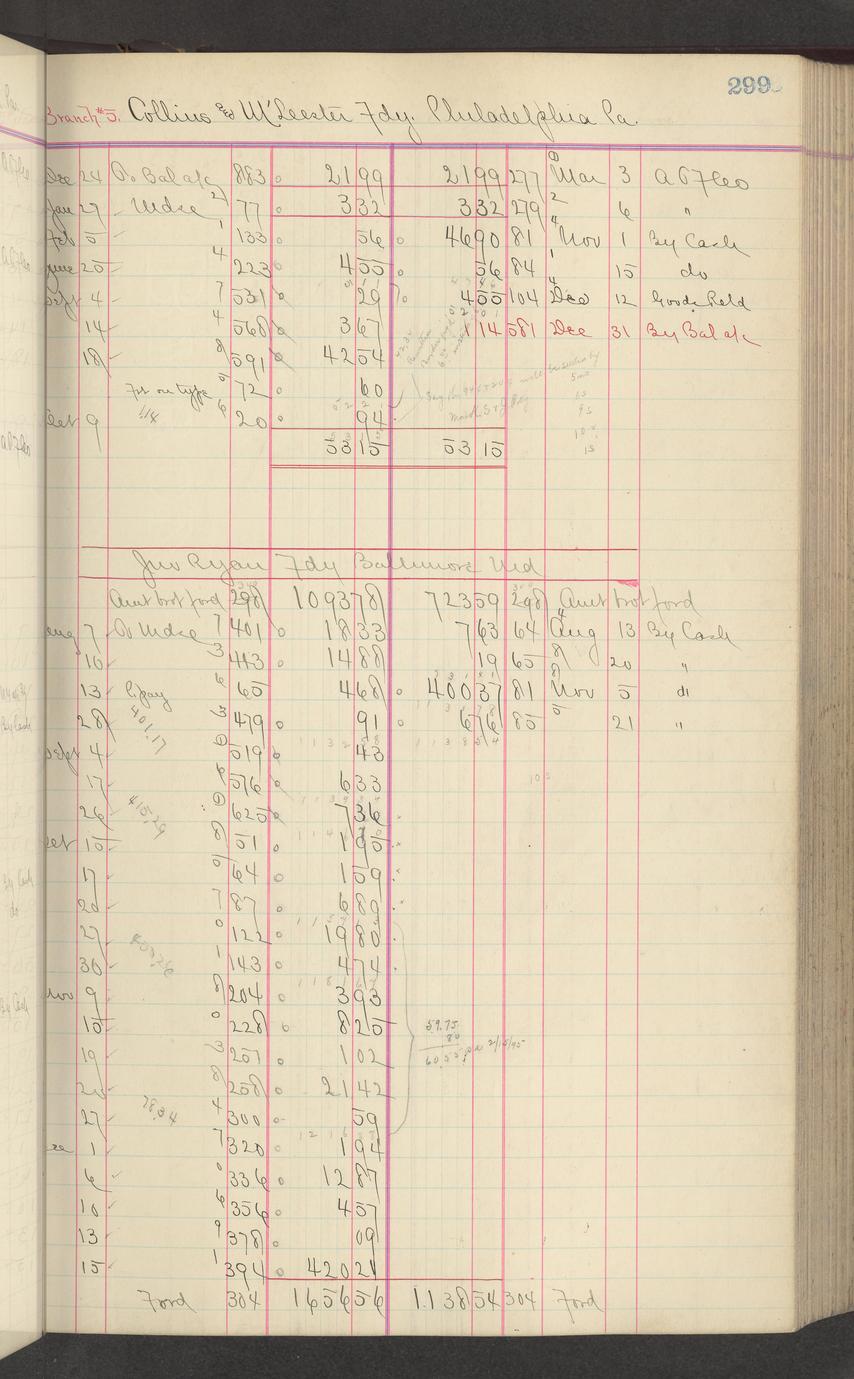 299
Branch #5. Collins & McLeester Fdy. Philadelphia Pa.
Dec 24 To Bal a/c 883 21 99 21 99 277 Mar 3 A P F Co
Jan 27 " Mdse 2 77 3 32 3 32 279 2 " 6 "
Feb 5 " 1 133 56 46 90 81 Nov 1 By Cash
June 25 4 223 4 55 56 84 " 15 do
Sept 4 7 531 29 4 55 104 Dec 12 Goods Retd
14 4 568 3 67 1 14 581 Dec 31 By Bal a/c
18 8 591 42 54
Frt on type 5 72 60
Oct 9 6 20 94
53 15 53 15
Jno Ryan Fdy Baltimore Md
Amt brot ford 298 1093 78 723 59 298 Amt brot ford
Aug 7 To Mdse 7 401 18 33 7 63 64 Aug 13 By Cash
10 3 443 14 88 19 65 8 20 "
13 6 65 4 68 400 37 81 8 Nov 5 do
28 3 479 91 6 76 85 5 21 "
Sept 4 0 519 43
17 6 576 6 33
26 0 625 7 36
Oct 15 8 51 1 95
17 5 64 1 59
20 7 87 6 89
27 0 122 19 80
30 1 143 4 74
Nov 9 8 204 3 93
15 0 228 8 25
59.75
80
60.55 pd 2/15/95
19 3 257 1 02
20 8 258 21 42
27 4 300 59
Dec 1 7 320 1 94
6 0 336 12 87
10 6 356 4 57
13 9 378 09
15 1 394 420 21
Ford 304 1656 56 1138 54 304 Ford